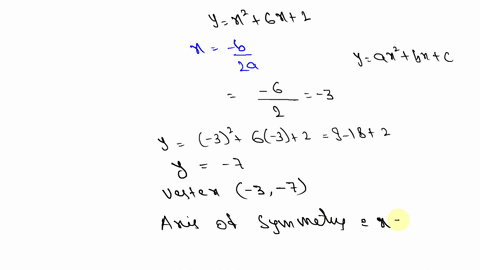 y=x²+6x+2
x = -6/2a
y=ax²+bx+c
= -6/2 = -3
y = (-3)² + 6(-3)+2 = 9-18+2
y = -7
Vertex (-3,-7)
Axis of Symmetry = x =